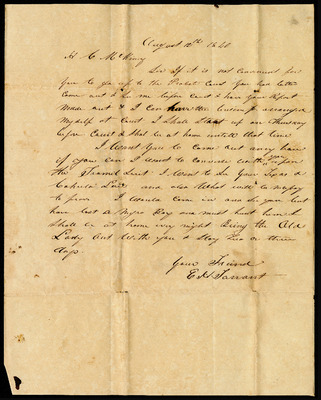 August 10th 1840
H. C. McKinny
Sir If it is not convenient for
you to go up to the Probate Court You had better
come out & se me before Court & have your Report
made out & I can have the business arranged
Myself at Court I shall start up on thursday
before Court & shal be at home untill that time
I Want you to come out any how
if you can I Want to consult with you upon
the Suit I Want to Se your Texas &
Land and also What will be necessary
to prove I Would come in and Se you but
have lost a Negro Boy and must hunt him I
Shall be at home evry night Bring the Old
Lady out with you & Stay two or three
days
Your Friend
E H Tarrant